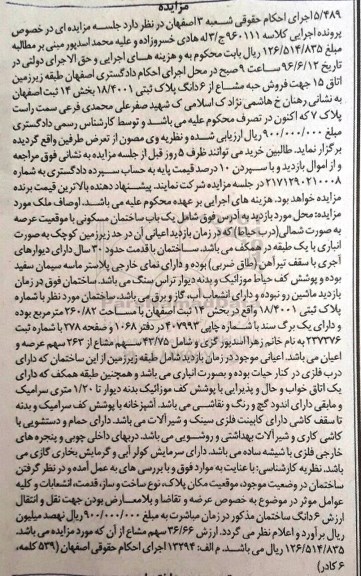 مزایده
۵/۴۸۹ اجرای احکام حقوقی شعبه ۳ اصفهان در نظر دارد جلسه مزایده ای در خصوص
پرونده اجرایی کلاسه ۹۶۰۱۱۱ج/۳ له هادی خسروزاده و علیه محمد اسدپور مبنی بر مطالبه
مبلغ ۱۲۶/۵۱۴/۸۳۵ ریال بابت محکوم به و هزینه های اجرایی و حق الاجرای دولتی در
تاریخ ۹۶/۶/۱۲ ساعت ۹ صبح در محل اجرای احکام دادگستری اصفهان طبقه زیرزمین
اتاق ۱۵ جهت فروش حبه مشاع از ۶ دانگ پلاک ثبتی ۱۸/۴۰۰۱ بخش ۱۴ ثبت اصفهان
به نشانی رهنان خ هاشمی نژاد ک اسلامی ک شهید صفر علی محمدی فرعی سمت راست
پلاک ۷ که اکنون در تصرف محکوم علیه می باشد و توسط کارشناس رسمی دادگستری
مبلغ ۹۰۰/۰۰۰/۰۰۰ ریال ارزیابی شده و نظریه وی مصون از تعرض طرفین واقع گردیده
برگزار نماید. طالبین خرید می توانند ظرف ۵ روز قبل از جلسه مزایده به نشانی فوق مراجعه
و از اموال بازدید و با سپردن ۱۰ درصد قیمت پایه به حساب سپرده دادگستری به شماره
۲۱۷۱۲۹۰۲۱۰۰۰۸ در جلسه مزایده شرکت نمایند. پیشنهاد دهنده بالاترین قیمت برنده
مزایده خواهد بود. هزینه های اجرایی بر عهده محکوم علیه می باشد. اوصاف ملک مورد
مزایده: محل مورد بازدید به آدرس فوق شامل یک باب ساختمان مسکونی با موقعیت عرصه
به صورت شمالی (درب حیاط) که در زمان بازدید اعیانی آن در حد زیرزمین کوچک به صورت
انباری با یک طبقه در همکف می باشد. ساختمان با قدمت حدود ۳۰ سال دارای دیوارهای
آجری با سقف تیرآهن (طاق ضربی) بوده و دارای نمای خارجی پلاستر ماسه سیمان سفید
بوده و پوشش کف حیاط موزائیک و بدنه دیوار تراس سنگ می باشد. ساختمان فوق در زمان
بازدید ماشین رو نبوده و دارای انشعاب آب، گاز و برق می باشد. ساختمان مورد نظر با شماره
پلاک ثبتی ۱۸/۴۰۰۱ واقع در بخش ۱۴ ثبت اصفهان با مساحت ۲۶۰/۸۲ مترمربع بوده
و دارای یک برگ سند با شماره چاپی ۴۰۷۹۹۳ در دفتر ۱۰۶۸ و صفحه ۲۷۸ با شماره ثبت
۲۳۷۳۷۶ به نام خانم زهرا اسدپور گزی و شامل ۴۳/۷۵ سهم مشاع از ۲۶۳ سهم عرصه و
اعیان می باشد. اعیانی موجود در زمان بازدید شامل طبقه زیرزمین از این ساختمان که دارای
درب فلزی در کنار حیات بوده و بصورت انباری می باشد و همچنین طبقه همکف که دارای
یک اتاق خواب و حال و پذیرایی با پوشش کف موزائیک بدنه دیوار تا ۱/۲۰ متری سرامیک
و مابقی دارای اندود گچ و رنگ و نقاشی می باشد. آشپزخانه با پوشش کف سرامیک و بدنه
تا سقف کاشی دارای کابینت فلزی سینک و شیرآلات می باشد. دارای حمام و دستشویی با
کاشی کاری و شیرآلات بهداشتی و روشویی می باشد. دربهای داخلی چوبی و پنجره های
خارجی فلزی با شیشه ساده می باشد. دارای سرمایش کولر آبی و گرمایش بخاری گازی می
باشد. نظریه کارشناسی: با عنایت به موارد فوق و با بررسی های به عمل آمده و در نظر گرفتن
ساختمان در وضعیت موجود، موقعیت مکان پلاک، نوع ساخت و ساز، قدمت، انشعابات و کلیه
عوامل موثر در موضوع به خصوص عرضه و تقاضا و بلامعارض بودن جهت نقل و انتقال
ارزش ۶ دانگ ساختمان مذکور در زمان مباشرت به مبلغ ۹۰۰/۰۰۰/۰۰۰ ریال نهصد میلیون
ریال برآورد و اعلام نظر می گردد. ارزش ۳۶/۶۶ سهم مشاع از آن که مورد مزایده می باشد.
۱۲۶/۵۱۴/۸۳۵ ریال می باشد. م الف: ۱۳۲۹۴ اجرای احکام حقوقی اصفهان (۵۳۹ کلمه،
۶ کادر)